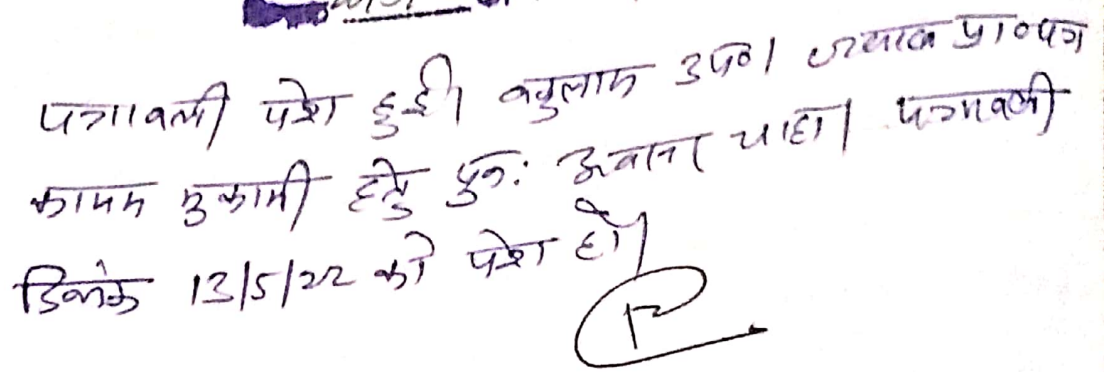 पत्रावली पेश हुई। वकुलाय उप०। जवाब प्रा०पत्र
कायम मुकामी हेतु पुनः अवसर चाहा। पत्रावली
दिनांक 13/5/22 को पेश हो।